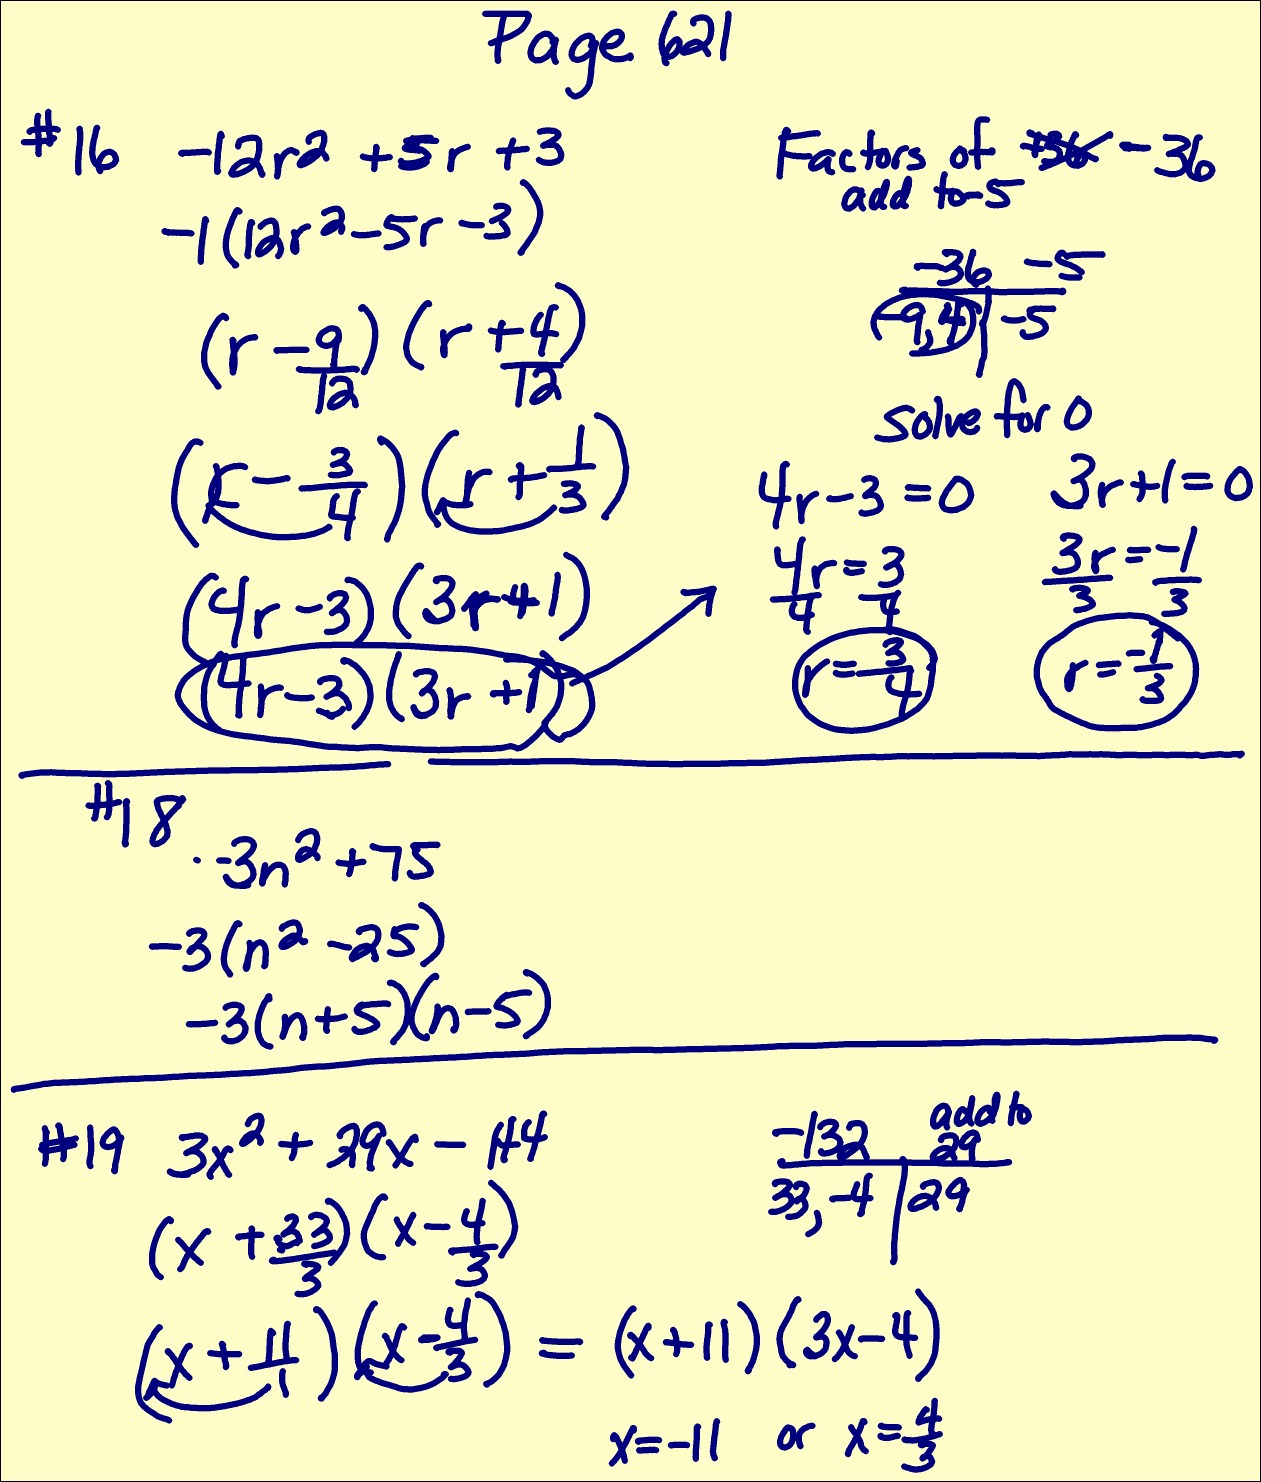 Page 621
#16 -12r² + 5r + 3
-1(12r² - 5r - 3)
(r - 9/12) (r + 4/12)
(r - 3/4) (r + 1/3)
(4r - 3) (3r + 1)
(4r - 3) (3r + 1)
Factors of +36 -36
add to -5
-36 -5
-9, 4 | -5
Solve for 0
4r - 3 = 0 3r + 1 = 0
4r/4 = 3/4 3r/3 = -1/3
r = 3/4 r = -1/3
#18
-3n² + 75
-3(n² - 25)
-3(n + 5)(n - 5)
#19 3x² + 29x - 44
(x + 33/3)(x - 4/3)
(x + 11/1)(x - 4/3) = (x + 11)(3x - 4)
x = -11 or x = 4/3
add to
-132 29
33, -4 | 29